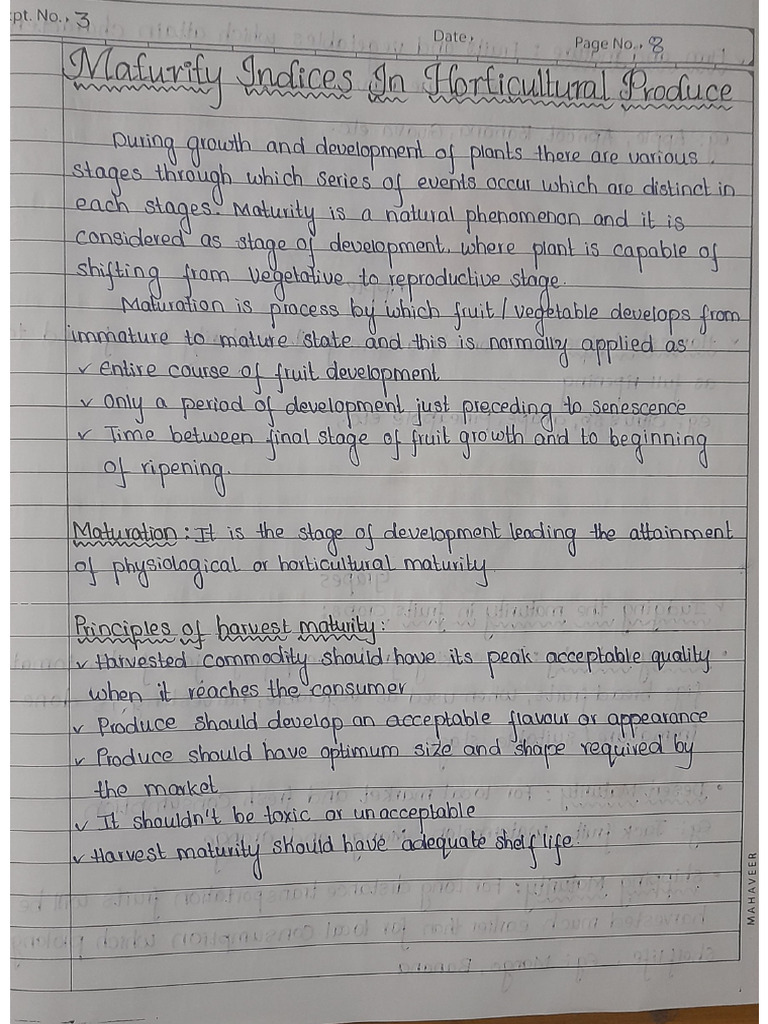 pt. No., 3
Date,
Page No., 8
Maturity Indices In Horticultural Produce
During growth and development of plants there are various
stages through which series of events occur which are distinct in
each stages. Maturity is a natural phenomenon and it is
considered as stage of development where plant is capable of
shifting from vegetative to reproductive stage.
Maturation is process by which fruit / vegetable develops from
immature to mature state and this is normally applied as
✓ entire course of fruit development
✓ Only a period of development just preceding to senescence
✓ Time between final stage of fruit growth and to beginning
of ripening.
Maturation: It is the stage of development leading the attainment
of physiological or horticultural maturity
Principles of harvest maturity:
✓ Harvested commodity should have its peak acceptable quality
when it reaches the consumer
✓ Produce should develop an acceptable flavour or appearance
✓ Produce should have optimum size and shape required by
the market
✓ It shouldn't be toxic or unacceptable
✓ Harvest maturity should have adequate shelf life.
MAHAVEER